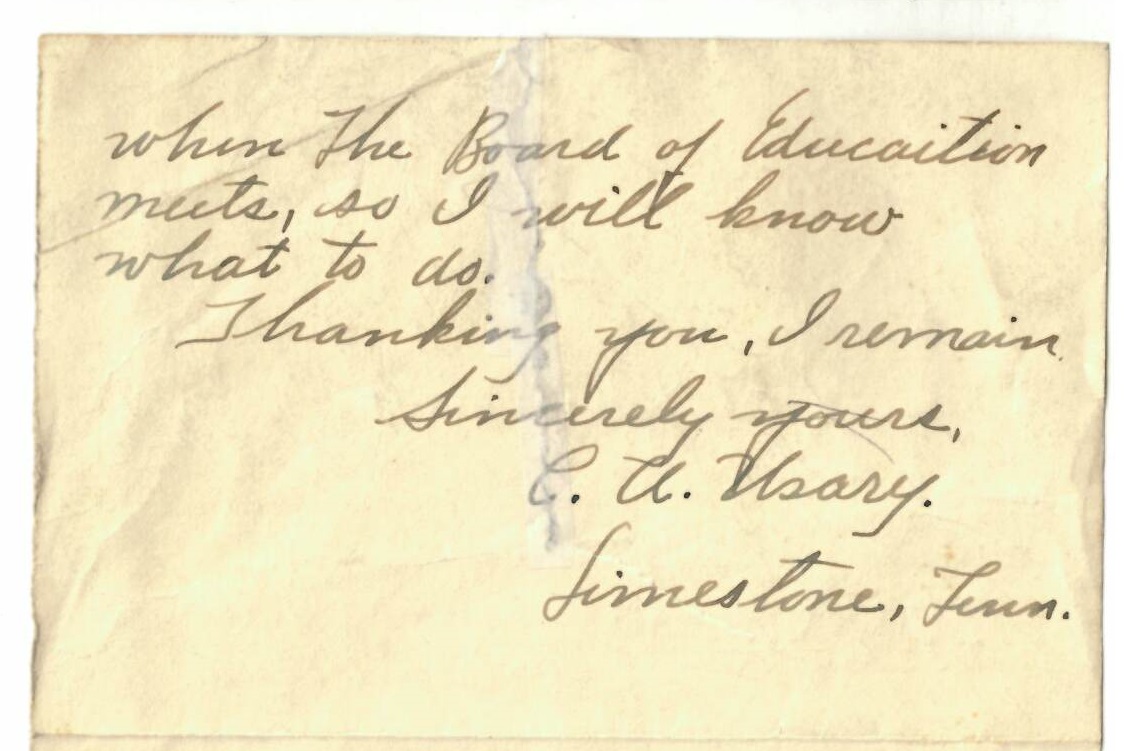 when The Board of Educaition
meets, so I will know
what to do.
Thanking you, I remain
Sincerely yours,
C. A. Usary.
Limestone, Tenn.